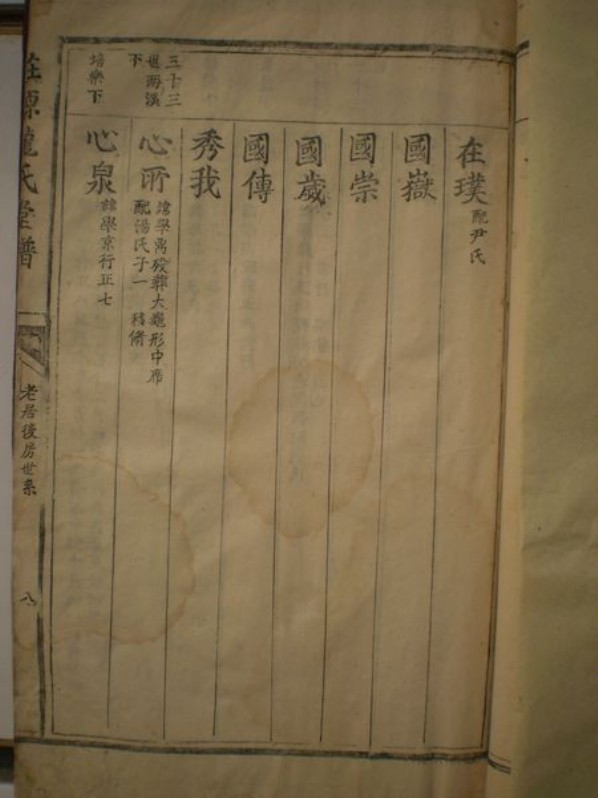 在璞 配尹氏
國嶽
國崇
國歲
國傳
秀我
三十三
世兩溪
下
心所
諱學禹歿葬大龜形中席
配湯氏子一
培樂下
心泉 諱學京行正七
源龍氏堂譜
老居後房世系
八